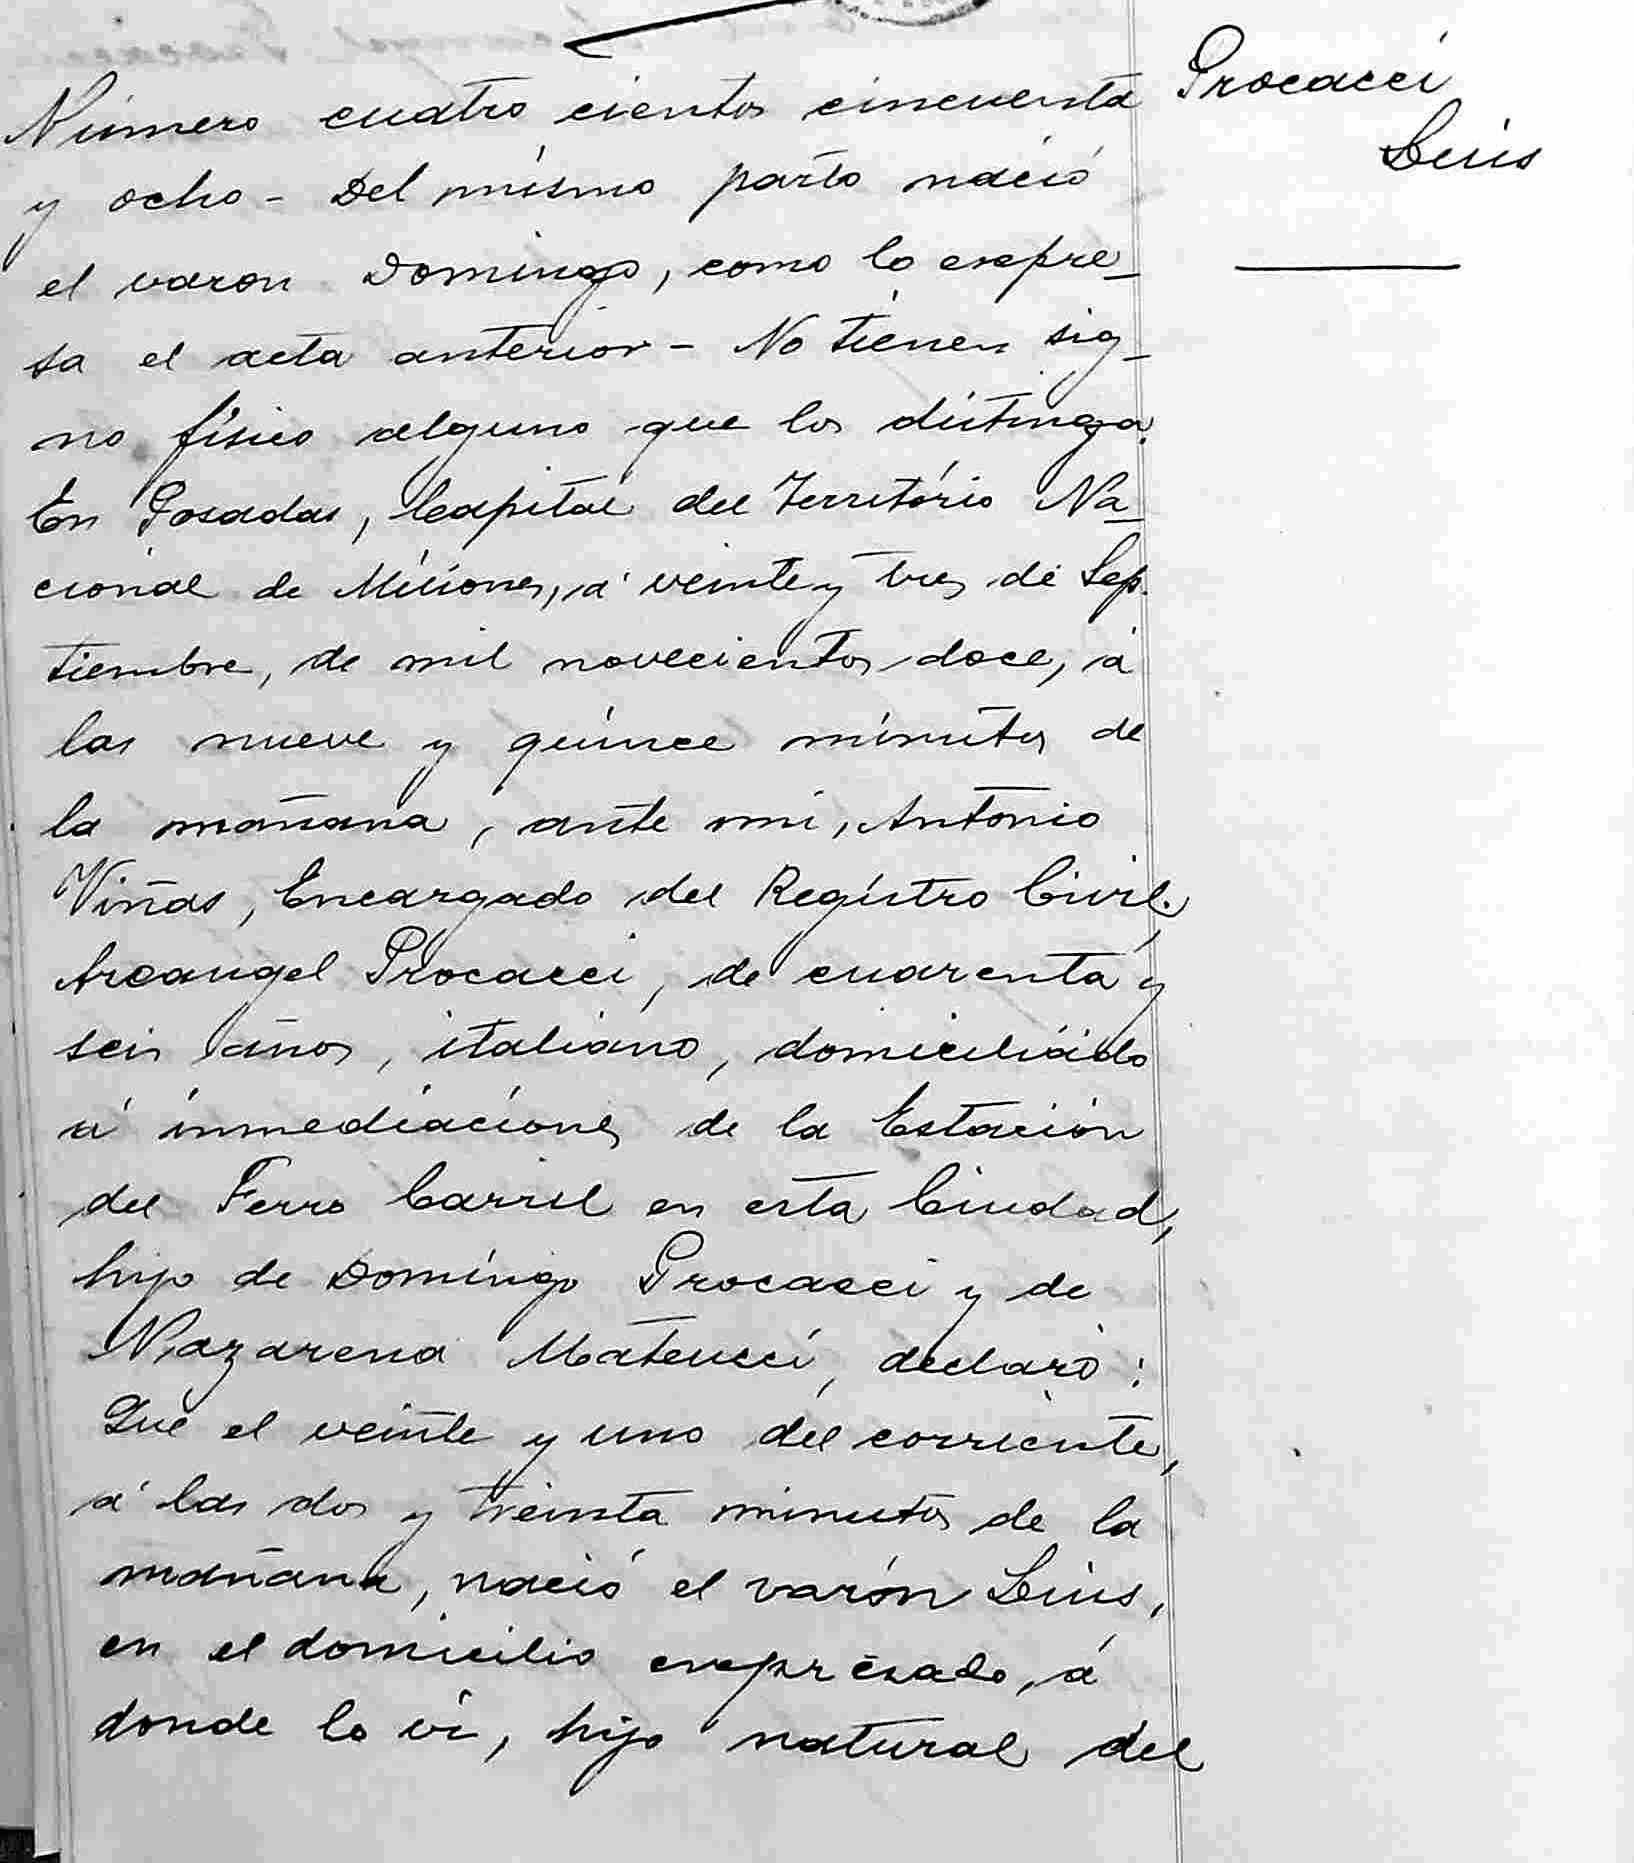 Procacci
Luis
Número cuatro cientos cincuenta
y ocho - Del mismo parto nació
el varon Domingo, como lo expre_
sa el acta anterior - No tienen sig_
no físico alguno que los distinga.
En Posadas, Capital del Território Na_
cional de Misiones, á veinte y tres de Sep.
tiembre, de mil novecientos doce, á
las nueve y quince minutos de
la mañana, ante mi, Antonio
Viñas, Encargado del Registro Civil;
Arcangel Procacci, de cuarenta y
seis años, italiano, domiciliado
á inmediaciones de la Estación
del Ferro Carril en esta Ciudad,
hijo de Domingo Procacci y de
Nazarena Mateucci, declaró:
Que el veinte y uno del corriente,
á las dos y treinta minutos de la
mañana, nació el varón Luis,
en el domicilio expresado, á
donde lo ví, hijo natural del